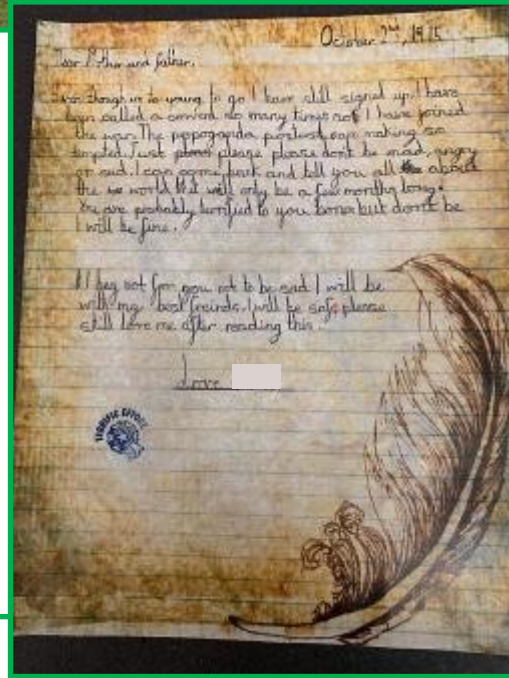 October 2nd, 1915
Dear Mother and father,
Even though im to young to go I have still signed up. I have
been called a coward so many times I have joined
the war. The popoganda posters making so
tempted. Just please please dont be mad, angry
or sad. I can come back and tell you all about
the world that will only be a few months long.
You are probably terrified to you bones but don't be
I will be fine.
I beg not for you not to be sad I will be
with my best freinds. I will be safe please
still love me after reading this.
Love
TERRIFIC EFFORT